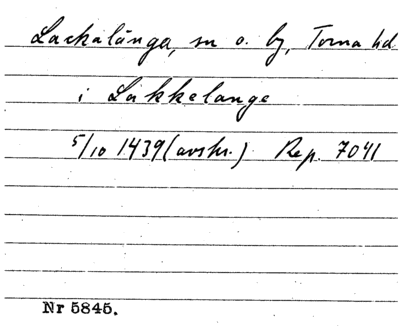 Lackalänga, sn o. by, Torna hd
i Lakkelange
5/10 1439 (avskr.) Rep. 7041
Nr 5845.